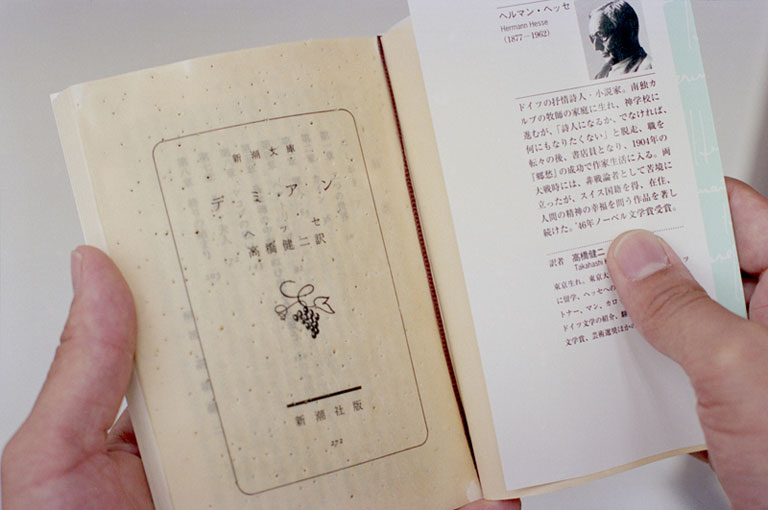 新潮文庫
デミアン
ヘッセ
高橋健二訳
新潮社版
272
ヘルマン・ヘッセ
Hermann Hesse
(1877－1962)
ドイツの抒情詩人・小説家。南独カ
ルプの牧師の家庭に生れ、神学校に
進むが、「詩人になるか、でなければ、
何にもなりたくない」と脱走、職を
転々の後、書店員となり、1904年の
『郷愁』の成功で作家生活に入る。両
大戦時には、非戦論者として苦境に
立ったが、スイス国籍を得、在住、
人間の精神の幸福を問う作品を著し
続けた。'46年ノーベル文学賞受賞。
訳者 高橋健二
Takahashi
東京生れ。東京大
に留学。ヘッセへの
トナー、マン、カロ
ドイツ文学の紹介、翻
文学賞、芸術選奨はか